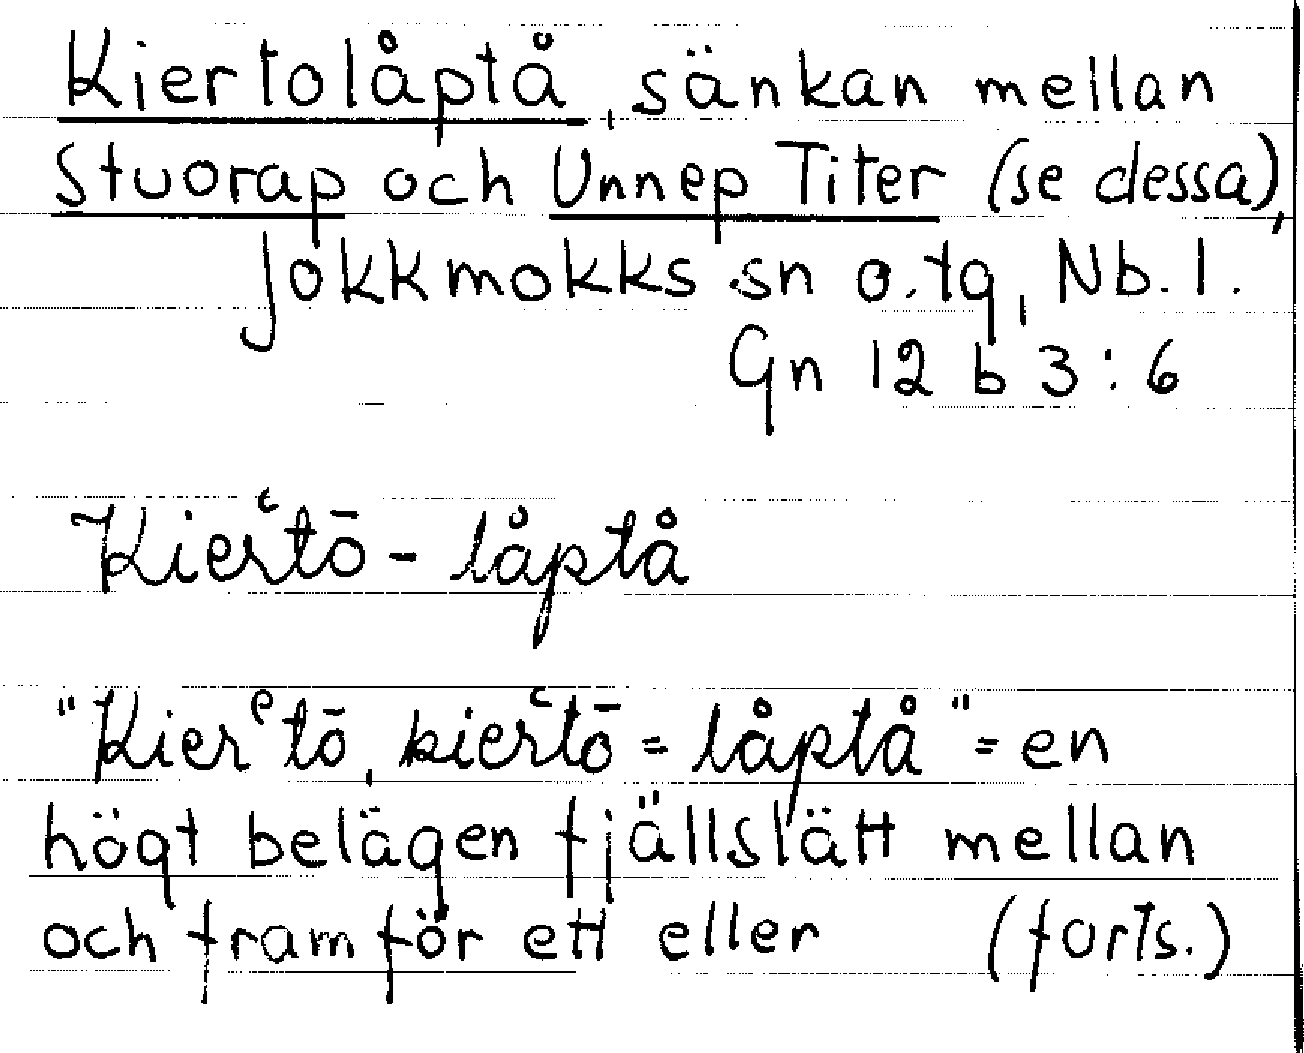 Kiertolåptå, sänkan mellan
Stuorap och Unnep Titer (se dessa),
Jokkmokks sn o. tg, Nb. l.
Gn 12 b 3 : 6
Kierʿtō - låptå
"Kierᵉtō, kierʿtō = låptå" = en
högt belägen fjällslätt mellan
och framför ett eller (forts.)